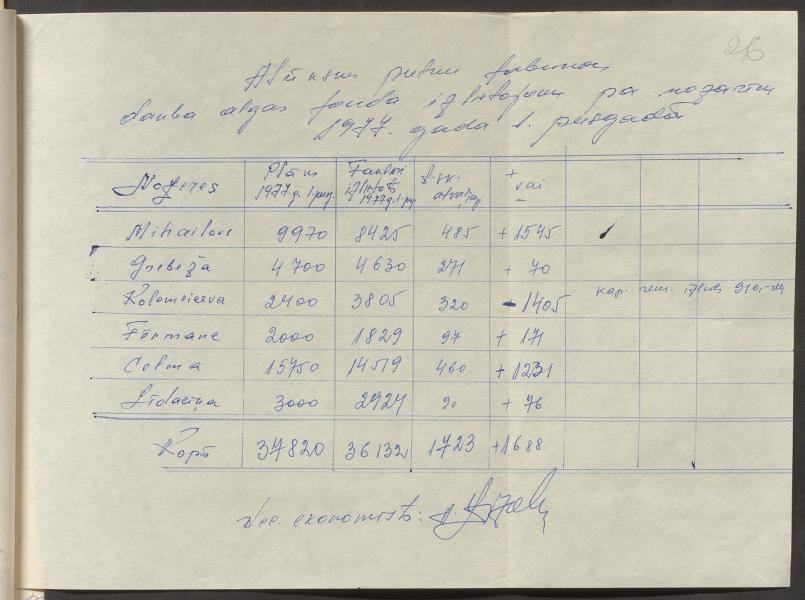 26
Alūksnes pienu fabrikas
darba algas fonda izlietojums pa nozarēm
1977. gada 1. pusgadā
Nozares | Plāns 1977.g. 1. pusg. | Faktiski izlietots 1977.g. 1. pg | t.sk. atvaļin. | + vai –
Mihailovs 9970 8425 485 + 1545
Grebeža 4700 4630 271 + 70
Kolomeiceva 2400 3805 320 - 1405 kap. rem. izliets 910,-
Fērmane 2000 1829 97 + 171
Celma 15750 14519 460 + 1231
Lidaciņa 3000 2924 90 + 76
Kopā 37820 36132 1723 +1688
Vec. ekonomists: